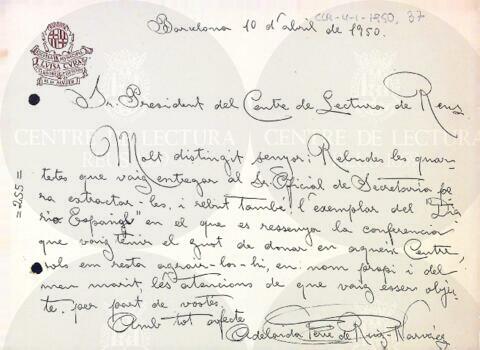 CCR-4-1-1950, 37
Barcelona 10 d'abril de 1950.
LUISA CURA
Sr. President del Centre de Lectura de Reus
CENTRE DE LECTURA
REUS
CENTRE DE LECTURA
Molt distingit senyor: Rebudes les quar-
tetes que vaig entregar al Sr. Oficial de Secretaria per
a extractar-les, i rebut també l'exemplar del "Dia
rio Español" en el que es ressenya la conferencia
que vaig tenir el gust de donar en aqueix Centre,
sols em resta agrair-los-hi, en nom propi i del
meu marit, les atencions de que vaig ésser objec-
te, per part de vostès.
Amb tot afecte
Adelaida Ferré de Ruiz-Narváez
=255=